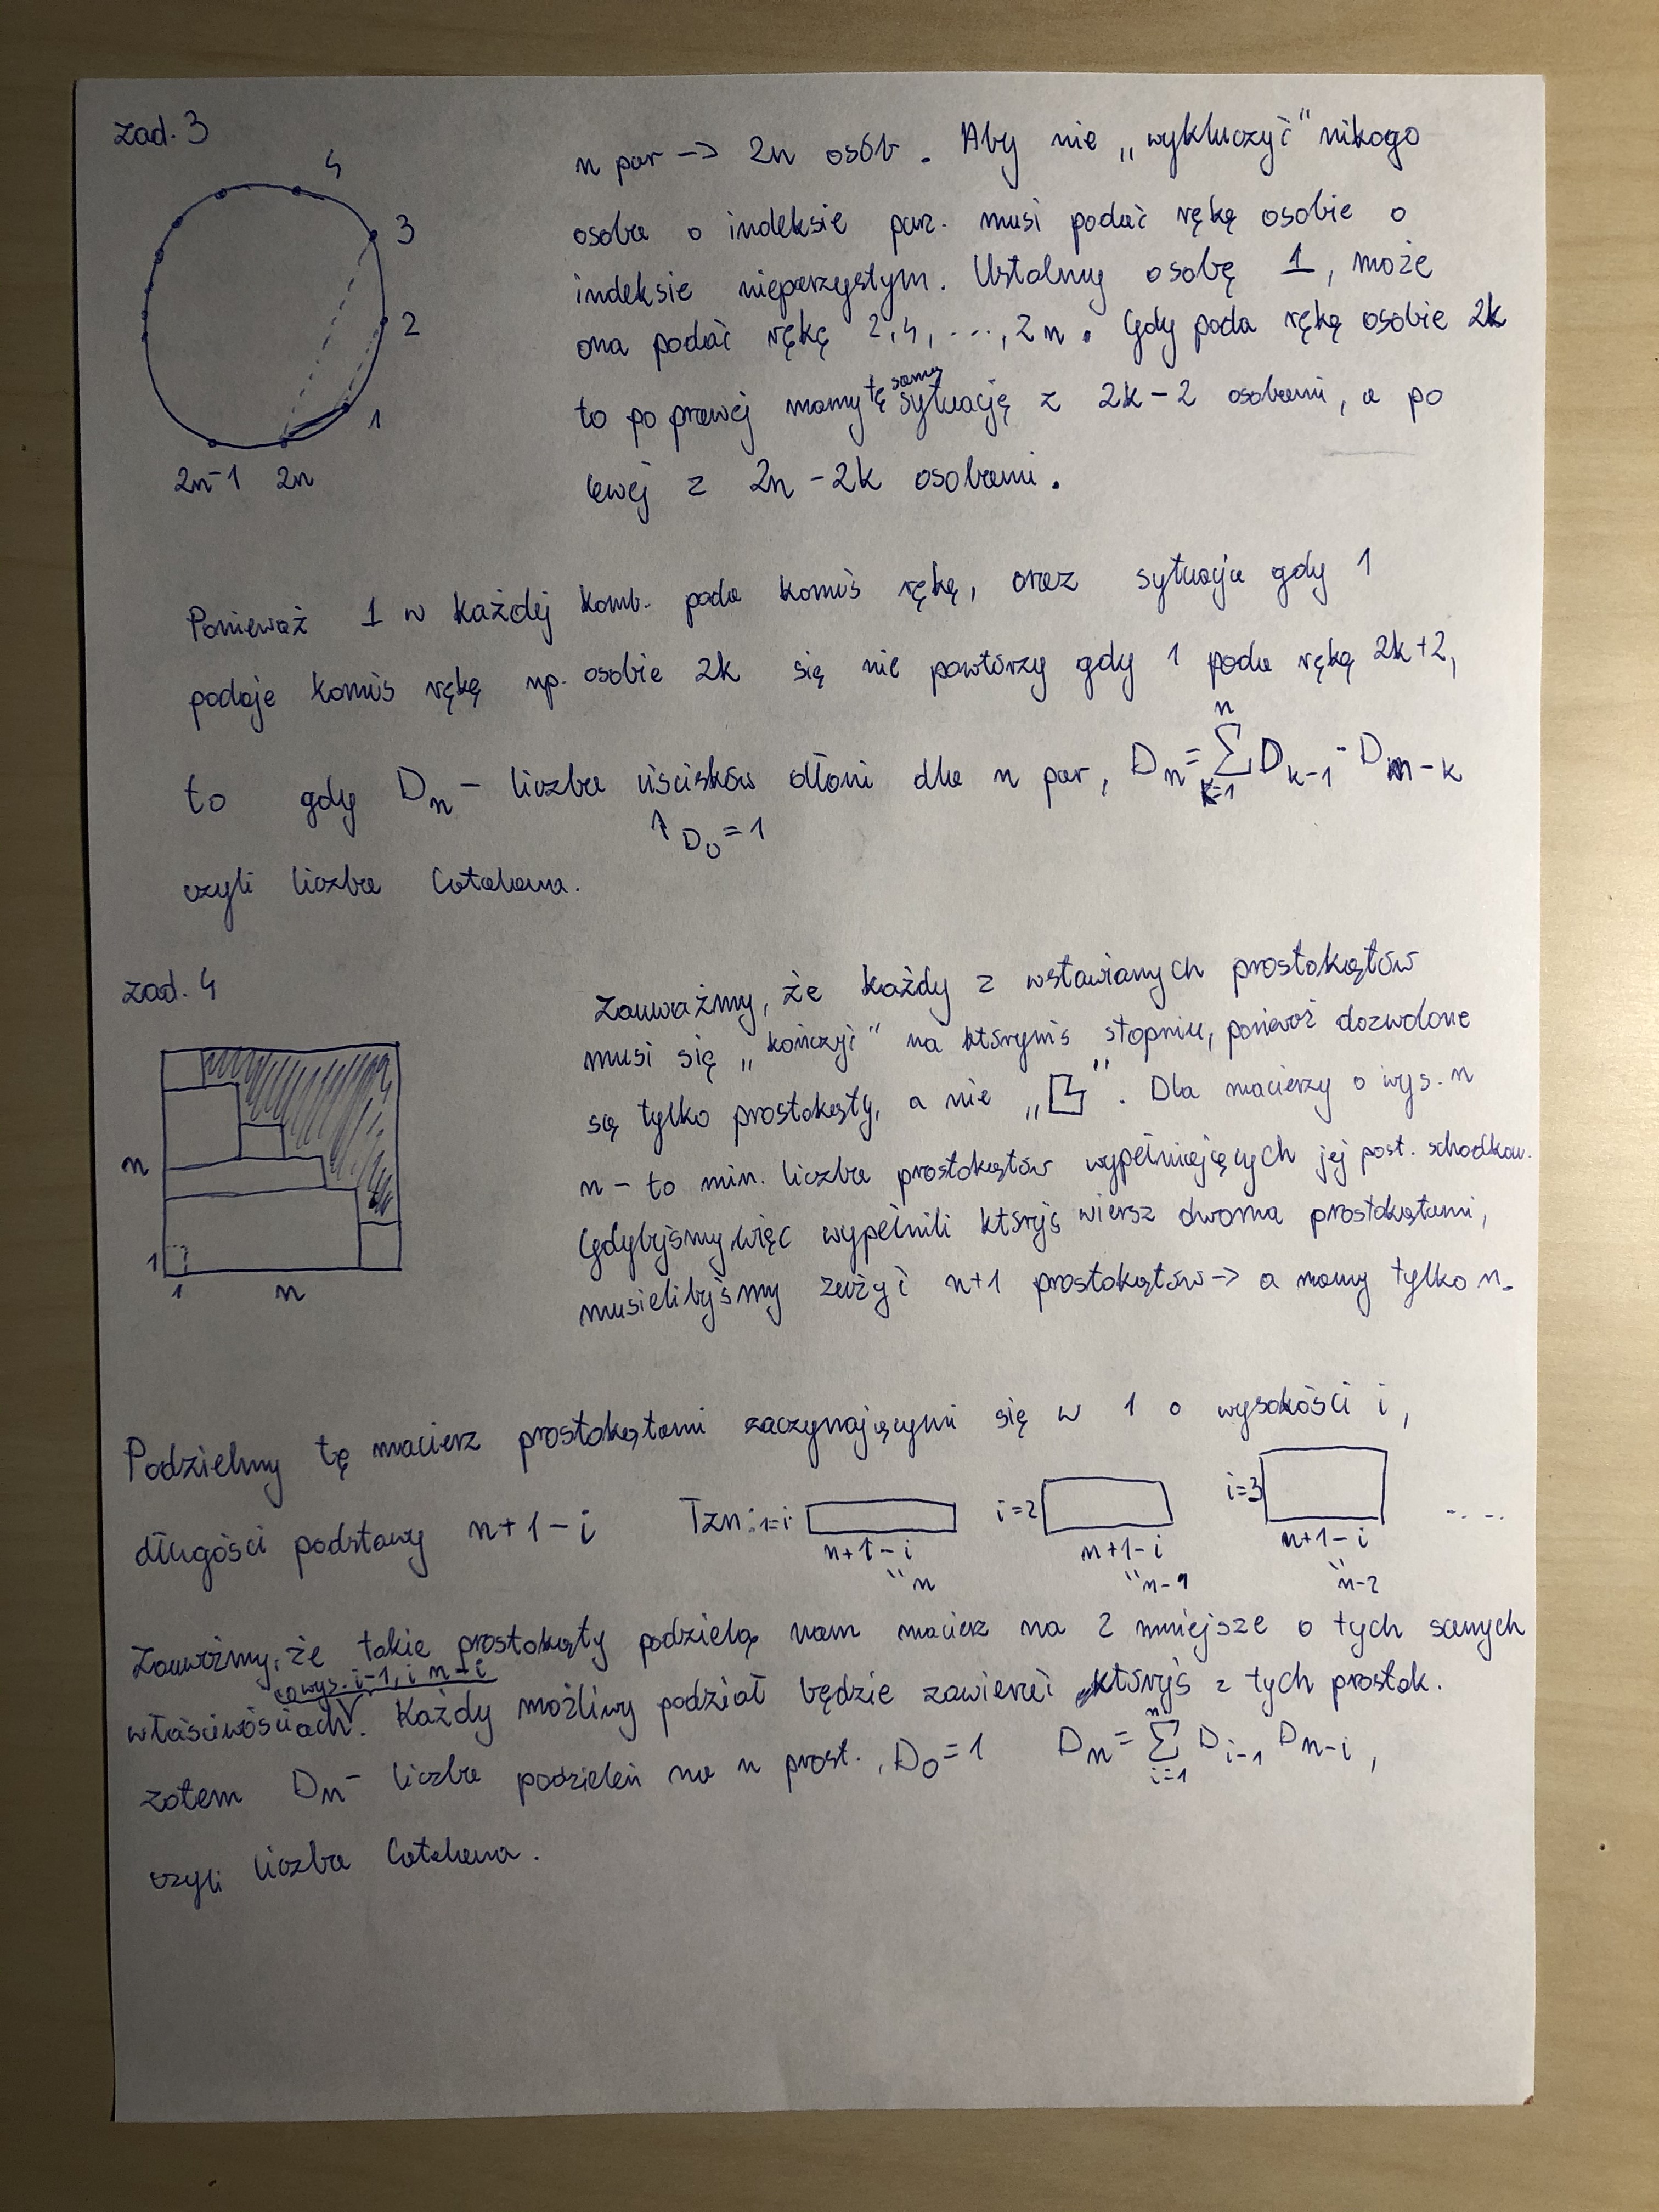 zad. 3
n par -> 2n osób. Aby nie „wykluczyć" nikogo
osoba o indeksie parz. musi podać rękę osobie o
indeksie nieparzystym. Ustalmy osobę 1, może
ona podać rękę 2, 4, ..., 2n. Gdy poda rękę osobie 2k
to po prawej mamy tę samą sytuację z 2k-2 osobami, a po
lewej z 2n-2k osobami.
4
3
2
1
2n-1 2n
Ponieważ 1 w każdej komb. poda komuś rękę, oraz sytuacja gdy 1
podaje komuś rękę np. osobie 2k się nie powtórzy gdy 1 poda rękę 2k+2,
to gdy Dn - liczba uścisków dłoni dla n par, Dn = n∑k=1 Dk-1 · Dn-k
↑ D0 = 1
czyli liczba Catalana.
zad. 4
Zauważmy, że każdy z wstawianych prostokątów
musi się „kończyć" na którymś stopniu, ponieważ dozwolone
są tylko prostokąty, a nie „ ". Dla macierzy o wys. n
n - to min. liczba prostokątów wypełniających jej post. schodkow.
Gdybyśmy więc wypełnili któryś wiersz dwoma prostokątami,
musielibyśmy zużyć n+1 prostokątów -> a mamy tylko n.
n
1
1 n
Podzielmy tę macierz prostokątami zaczynającymi się w 1 o wysokości i,
długości podstawy n+1-i Tzn: 1=i i=2 i=3 ....
n+1-i n+1-i n+1-i
"n "n-1 "n-2
Zauważmy, że takie prostokąty podzielą nam macierz na 2 mniejsze o tych samych
o wys. i-1, i n-i
właściwościach. Każdy możliwy podział będzie zawierać któryś z tych prostok.
zatem Dn - liczba podzieleń na n prost., D0 = 1 Dn = n∑i=1 Di-1 Dn-i,
czyli liczba Catalana.